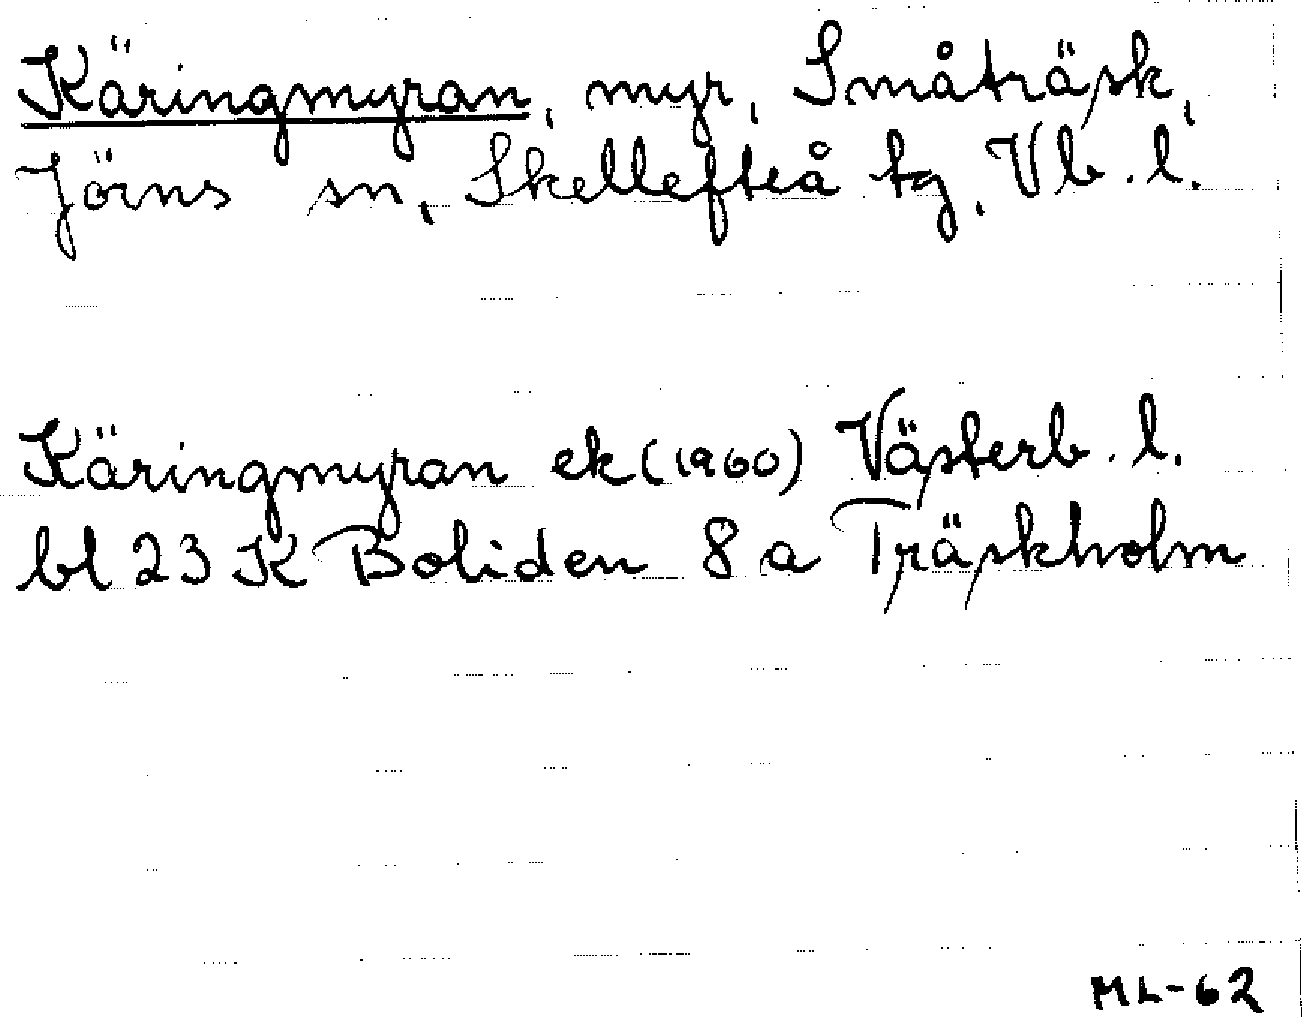 Käringmyran, myr, Småträsk,
Jörns sn, Skellefteå tg, Vb. l.
Käringmyran ek (1960) Västerb. l.
bl 23 K Boliden 8 a Träskholm
ML-62